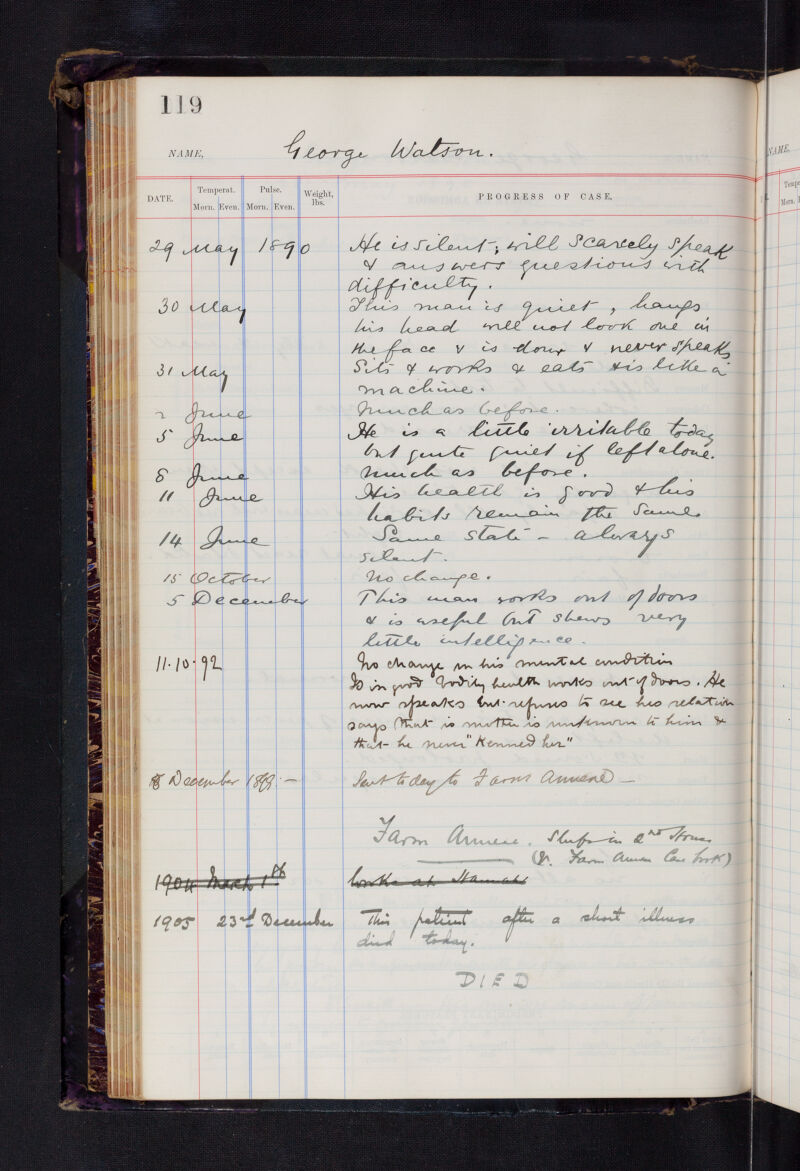 119
NAME, George Watson.
NAME,
DATE. Temperat. Pulse. Weight, lbs. PROGRESS OF CASE.
Morn. Even. Morn. Even.
29 May 1890 He is silent; will scarcely speak
& answers questions with
difficulty.
30 May This man is quiet, hangs
his head will not look one in
the face & is dour & never speaks
31 May Sits & works & eats & is like a
machine.
2 June Much as before.
5 June He is a little irritable today
but quite quiet if left alone.
8 June Much as before.
11 June His health is good & his
habits remain the same
14 June Same state – always
silent.
15 October No change.
5 December This man works out of doors
& is useful but shews very
little intelligence.
11.10.92 No change in his mental condition
Is in good bodily health works out of doors. He
now speaks but refuses to see his relation
says that is mother is unknown to him &
that he never "Kenned her"
8 December 1899 – Sent today to Farm Annexe –
Farm Annexe. Sleeps in 2nd
(V. Farm Annex Case Book)
1904 March 1st Works at
1905 23rd December This patient after a short illness
died today.
DIED